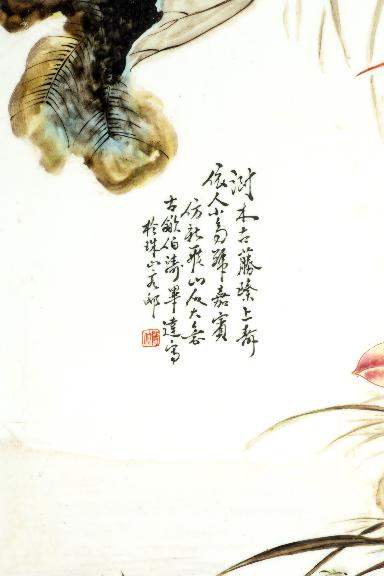 木古藤臻上壽
依人小鳥號嘉賓
仿新羅山人大意
古歙伯濤畢達寫
於珠山客邸